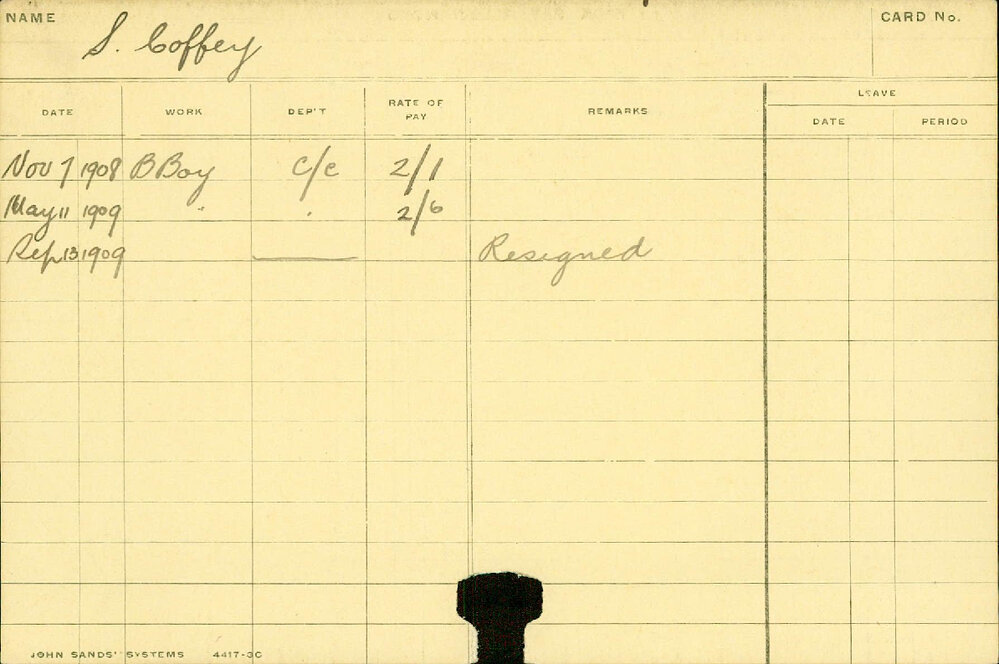 NAME S. Coffey CARD No.
LEAVE
DATE WORK DEP'T RATE OF PAY REMARKS DATE PERIOD
Nov 7 1908 B Boy c/c 2/1
May 11 1909 " " 2/6
Sep 13 1909 Resigned
JOHN SANDS' SYSTEMS 4417-3C